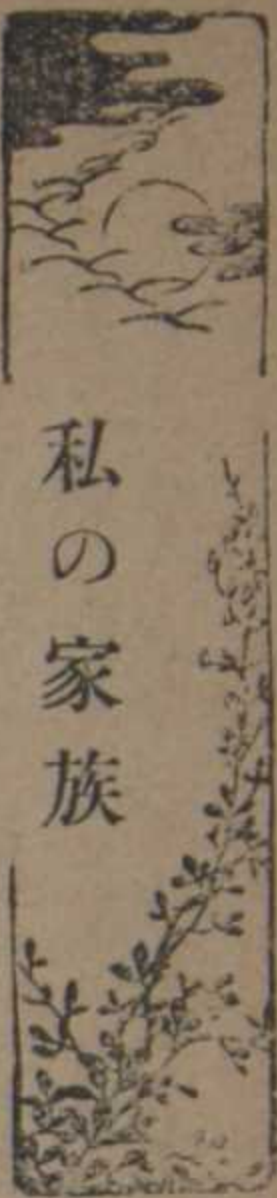 私の家族